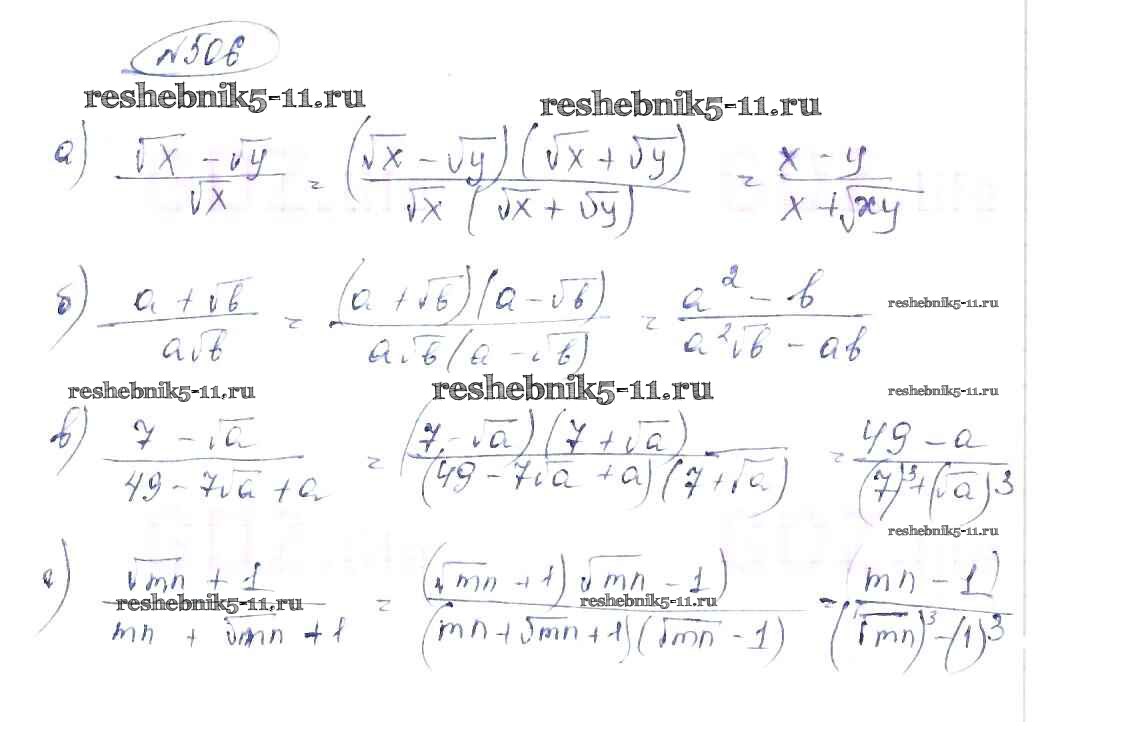 №506
reshebnik5-11.ru
reshebnik5-11.ru
а) (√x - √y)/√x = ((√x - √y)(√x + √y))/(√x(√x + √y)) = (x - y)/(x + √xy)
б) (a + √b)/(a√b) = ((a + √b)(a - √b))/(a√b(a - √b)) = (a² - b)/(a²√b - ab)
reshebnik5-11.ru
reshebnik5-11.ru
reshebnik5-11.ru
reshebnik5-11.ru
в) (7 - √a)/(49 - 7√a + a) = ((7 - √a)(7 + √a))/((49 - 7√a + a)(7 + √a)) = (49 - a)/((7)³ + (√a)³)
reshebnik5-11.ru
г) (√mn + 1)/(mn + √mn + 1) = ((√mn + 1) √mn - 1))/((mn + √mn + 1)(√mn - 1)) = (mn - 1)/((√mn)³ - (1)³)
reshebnik5-11.ru
reshebnik5-11.ru